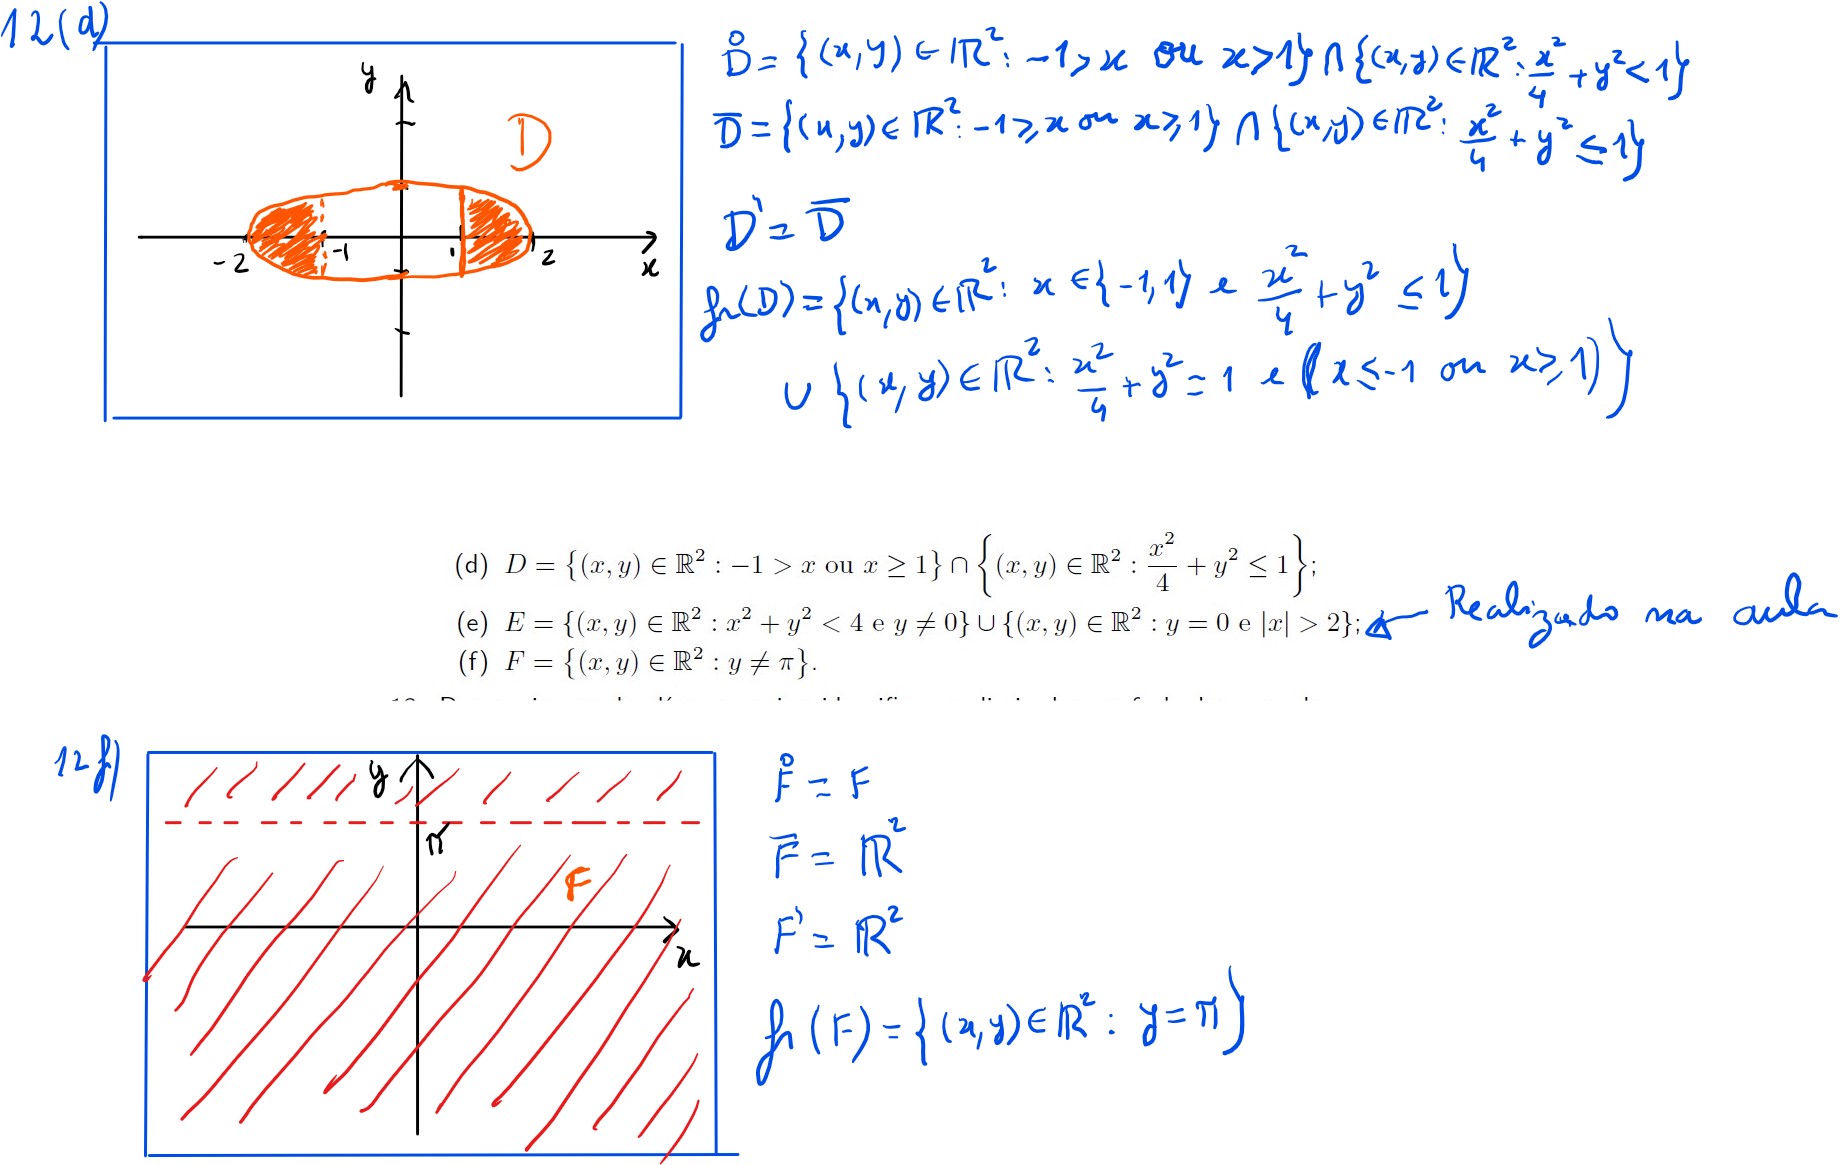 12(d)
y
D
-2 -1 1 2
x
D̊ = {(x,y) ∈ ℝ²: -1 > x ou x > 1} ∩ {(x,y) ∈ ℝ²: x²/4 + y² < 1}
D̄ = {(x,y) ∈ ℝ²: -1 ≥ x ou x ≥ 1} ∩ {(x,y) ∈ ℝ²: x²/4 + y² ≤ 1}
D' = D̄
fr(D) = {(x,y) ∈ ℝ²: x ∈ {-1,1} e x²/4 + y² ≤ 1}
∪ {(x,y) ∈ ℝ²: x²/4 + y² = 1 e (x ≤ -1 ou x ≥ 1)}
(d) D = {(x, y) ∈ ℝ² : −1 > x ou x ≥ 1} ∩ {(x, y) ∈ ℝ² : x²/4 + y² ≤ 1};
(e) E = {(x, y) ∈ ℝ² : x² + y² < 4 e y ≠ 0} ∪ {(x, y) ∈ ℝ² : y = 0 e |x| > 2}; ← Realizado na aula
(f) F = {(x, y) ∈ ℝ² : y ≠ π}.
12 f)
y
π
F
x
F̊ = F
F̄ = ℝ²
F' = ℝ²
fr(F) = {(x,y) ∈ ℝ²: y = π}